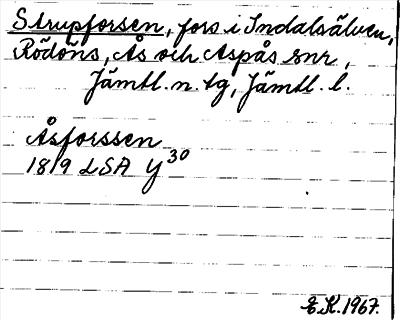 Strupforsen, fors i Indalsälven,
Rödöns, Ås och Aspås snr,
Jämtl. n. tg, Jämtl. l.
Åsforssen
1819 LSA Y30
E.K. 1967.